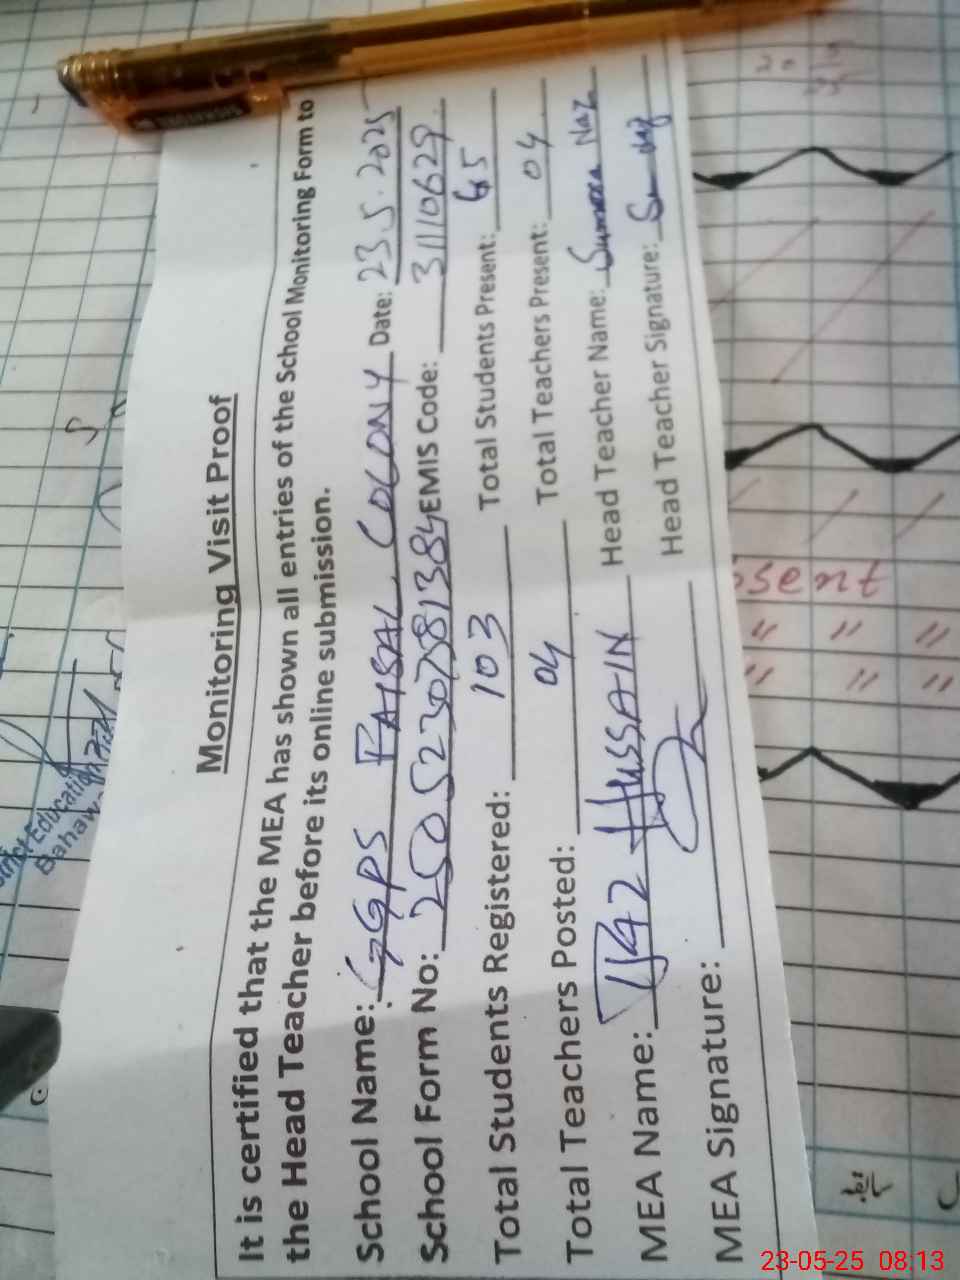 Monitoring Visit Proof
It is certified that the MEA has shown all entries of the School Monitoring Form to
the Head Teacher before its online submission.
School Name: GGPS FAISAL COLONY Date: 23.5.2025
School Form No: 2505230781384 EMIS Code: 31110629
Total Students Registered: 103 Total Students Present: 65
Total Teachers Posted: 04 Total Teachers Present: 04
MEA Name: HUSSAIN Head Teacher Name: Sumera Naz
MEA Signature: Head Teacher Signature:
23-05-25 08:13